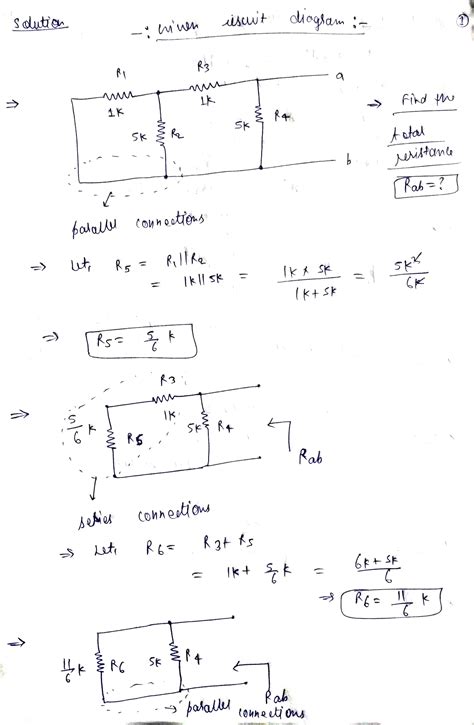 Solution -: Given circuit diagram :- ①
R1 R3 a
⇒ 1K 1K → Find the
5K R2 5K R4 total
resistance
b Rab = ?
parallel connections
⇒ Let, R5 = R1 || R2
= 1K || 5K = 1K × 5K / 1K + 5K = 5K² / 6K
⇒ R5 = 5/6 K
R3
⇒ 1K
5/6 K R5 5K R4
Rab
series connections
⇒ Let, R6 = R3 + R5
= 1K + 5/6 K = 6K + 5K / 6
⇒ R6 = 11/6 K
⇒
11/6 K R6 5K R4
Rab
→ parallel connections